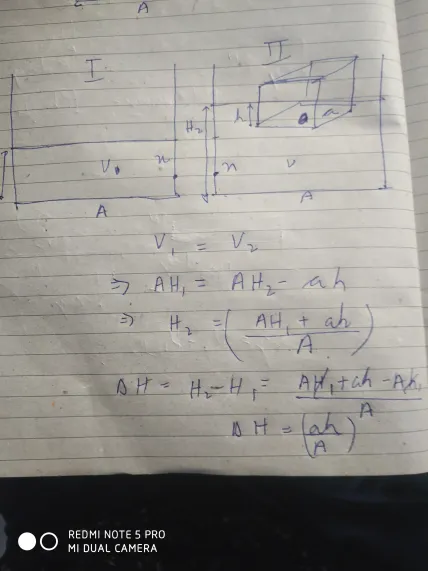 A
I
II
H₂
h
a
V
x
x
v
A
A
V₁ = V₂
⇒ AH₁ = AH₂ - ah
⇒ H₂ = (AH₁ + ah / A)
ΔH = H₂-H₁ = AH₁+ah-AH₁ / A
ΔH = (ah/A)
REDMI NOTE 5 PRO
MI DUAL CAMERA